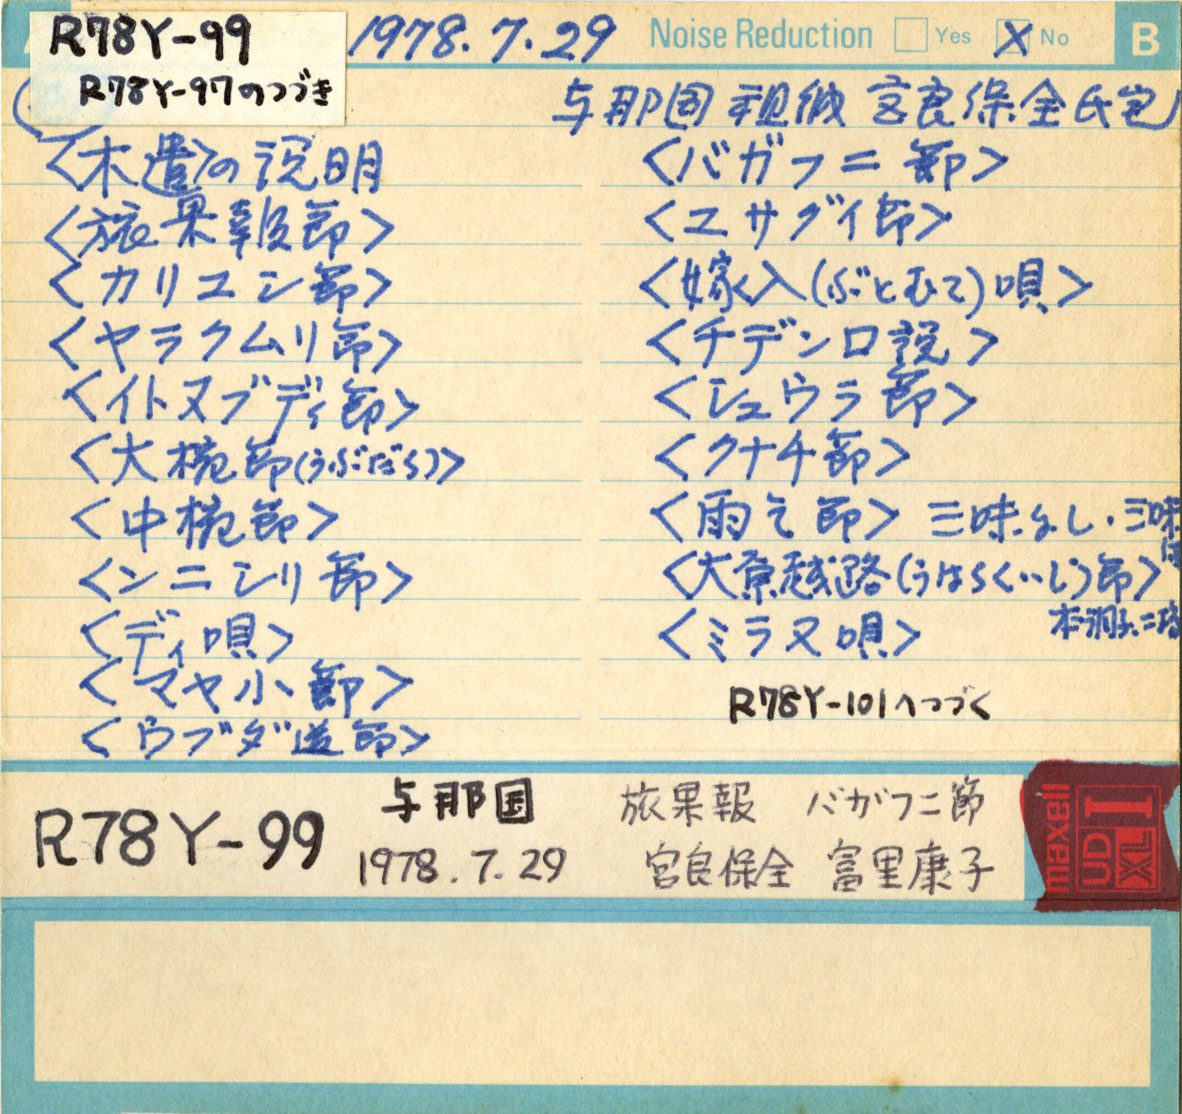 R78Y-99
R78Y-97のつづき
1978.7.29
Noise Reduction Yes X No
B
与那国 祖納 宮良保全氏宅
<木遣>の説明
<旅果報節>
<カリユシ節>
<ヤラクムリ節>
<イトヌブディ節>
<大椀節(うぶだら)>
<中椀節>
<ンニシリ節>
<ディ唄>
<マヤ小節>
<ウブダ道節>
<バガフニ節>
<ユサグイ節>
<嫁入(ぶとむて)唄>
<チデン口説>
<シュウラ節>
<クナチ節>
<雨乞節> 三味なし・三味
<大原越路(うはらくいじ)節>
本調子、二
<ミラヌ唄>
R78Y-101へつづく
R78Y-99
与那国
1978.7.29
旅果報 バガフニ節
宮良保全 富里康子
maxell
UD XL I